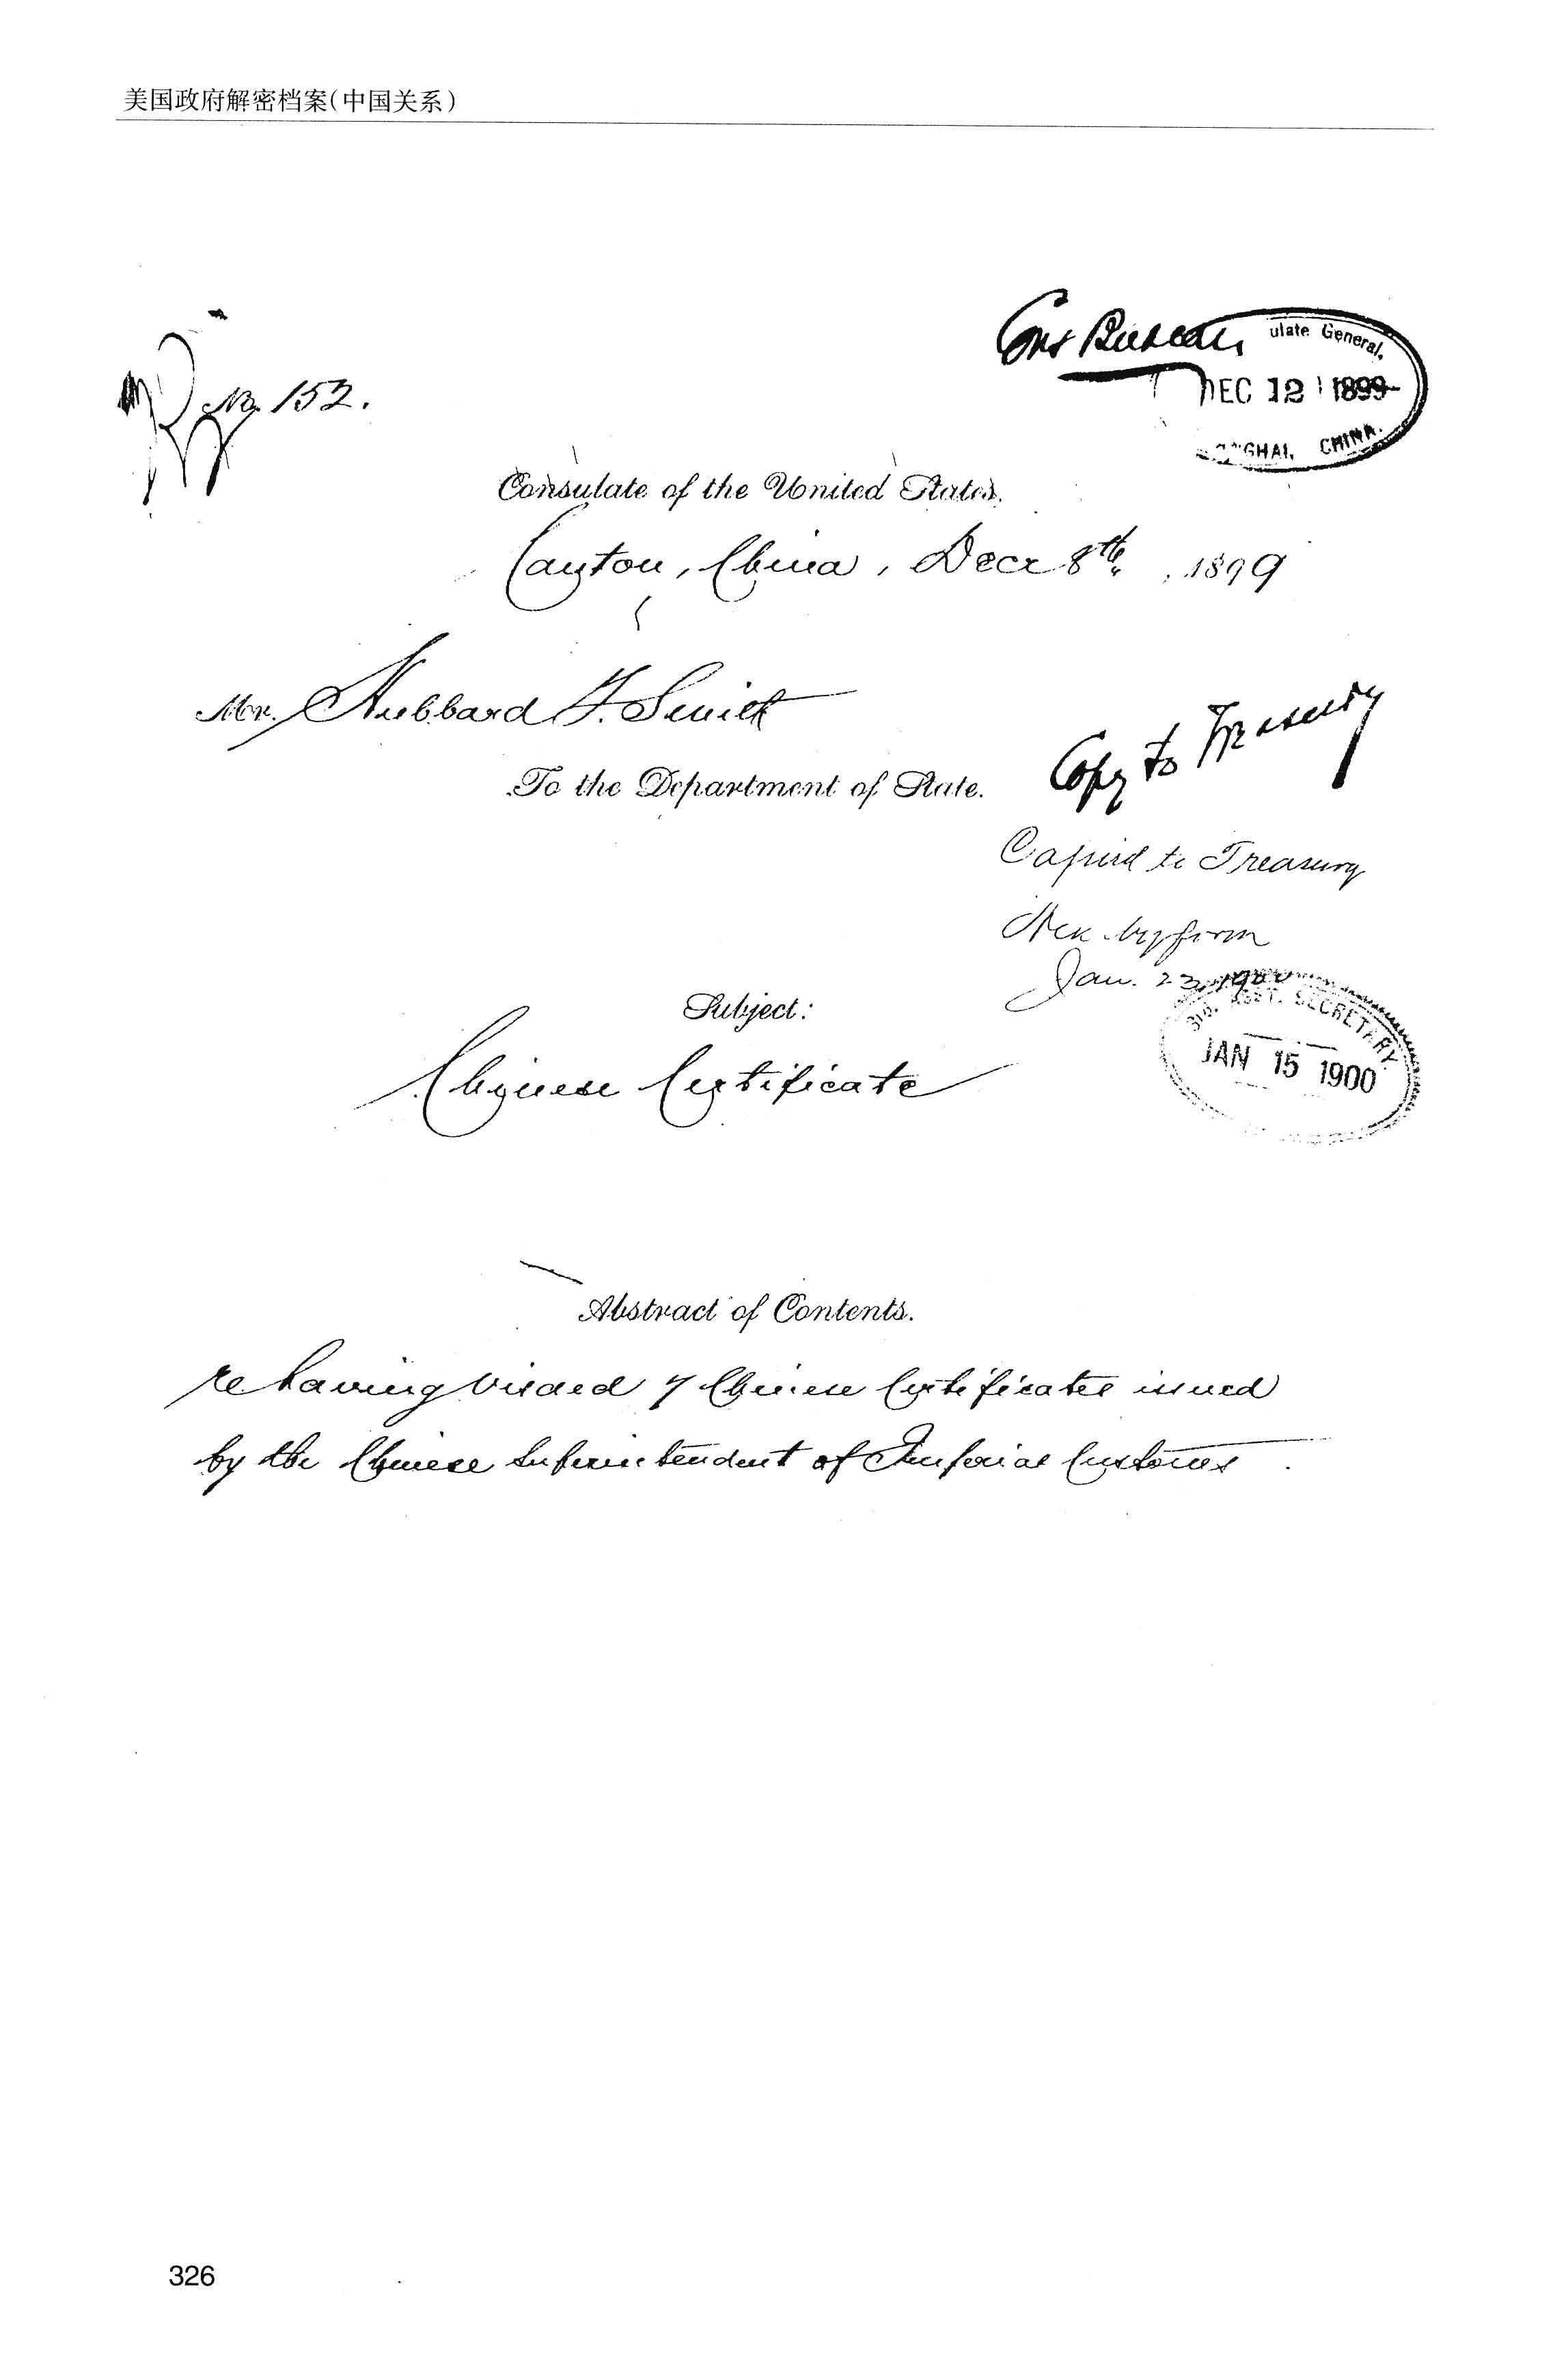 美国政府解密档案(中国关系)
Cons Bureau
ulate General,
DEC 12 1899
GHAI, CHINA.
No. 152.
Consulate of the United States,
Canton, China, Decr 8th, 1899
Mr. Hubbard T. Smith
To the Department of State.
Copy to Treasury
Copied to Treasury
Ack. by form
Jan. 23, 1900
3rd. ASST. SECRETARY.
JAN 15 1900
Subject:
Chinese Certificate
Abstract of Contents.
re having visaed 7 Chinese Certificates issued
by the Chinese Superintendent of Imperial Customs.
326